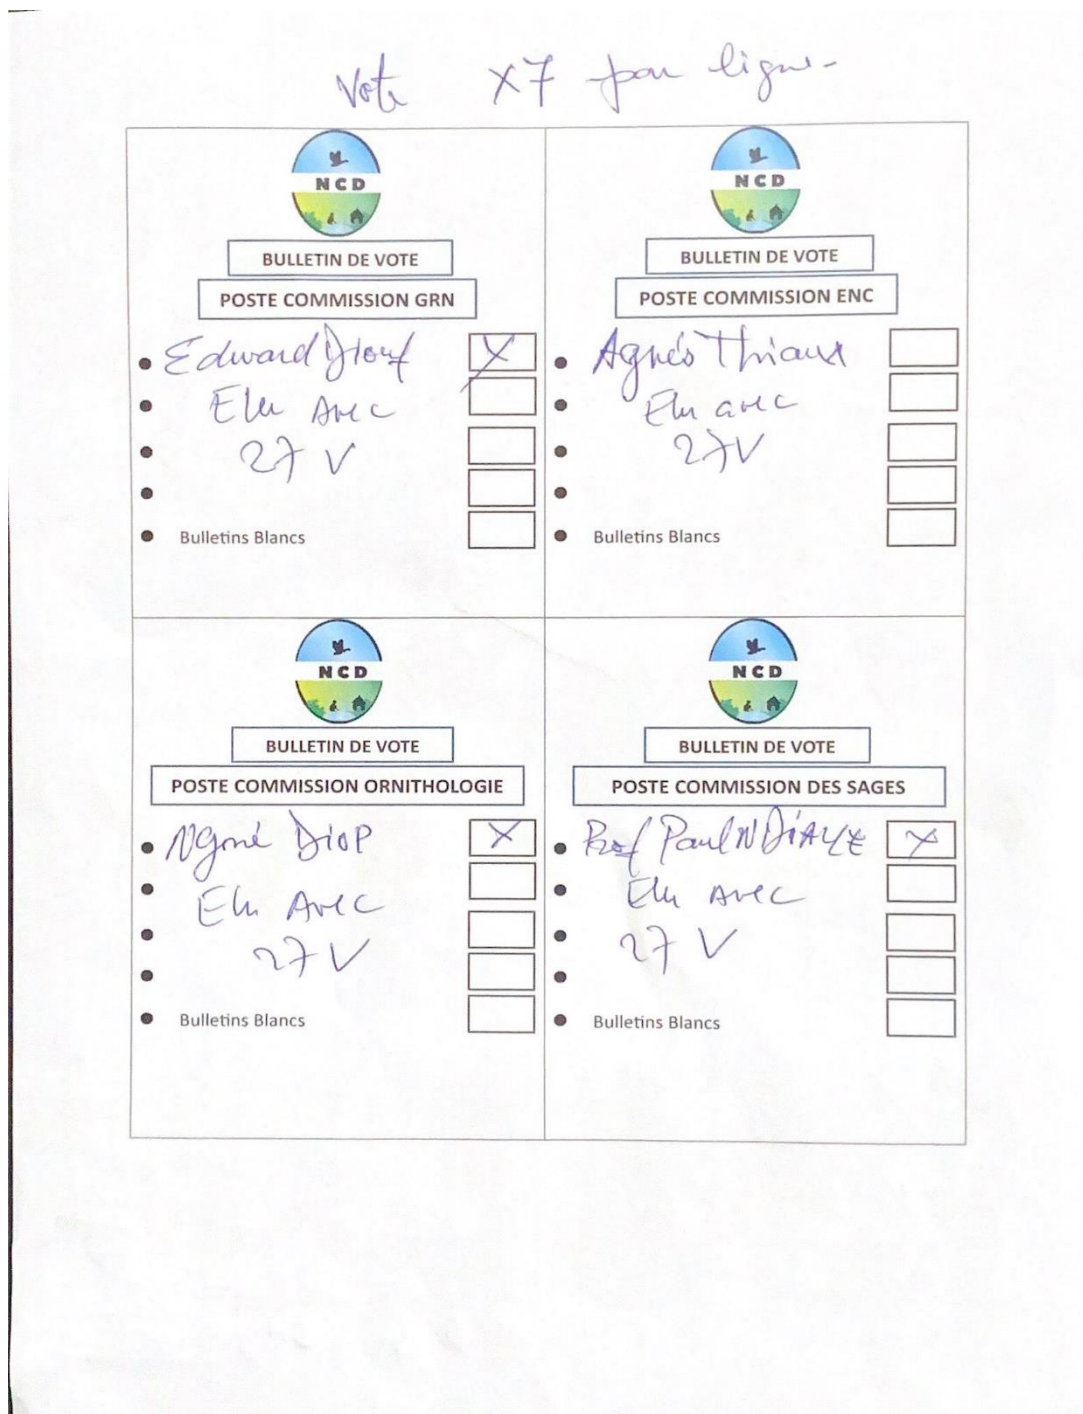 Vote X7 par ligne-
NCD
BULLETIN DE VOTE
POSTE COMMISSION GRN
Edward Diouf X
Elu Avec
27 V
Bulletins Blancs
NCD
BULLETIN DE VOTE
POSTE COMMISSION ENC
Agnés Thiaw
Elu avec
27V
Bulletins Blancs
NCD
BULLETIN DE VOTE
POSTE COMMISSION ORNITHOLOGIE
Ngoné DioP X
Elu Avec
27 V
Bulletins Blancs
NCD
BULLETIN DE VOTE
POSTE COMMISSION DES SAGES
Prof Paul NDiAYE X
Elu Avec
27 V
Bulletins Blancs